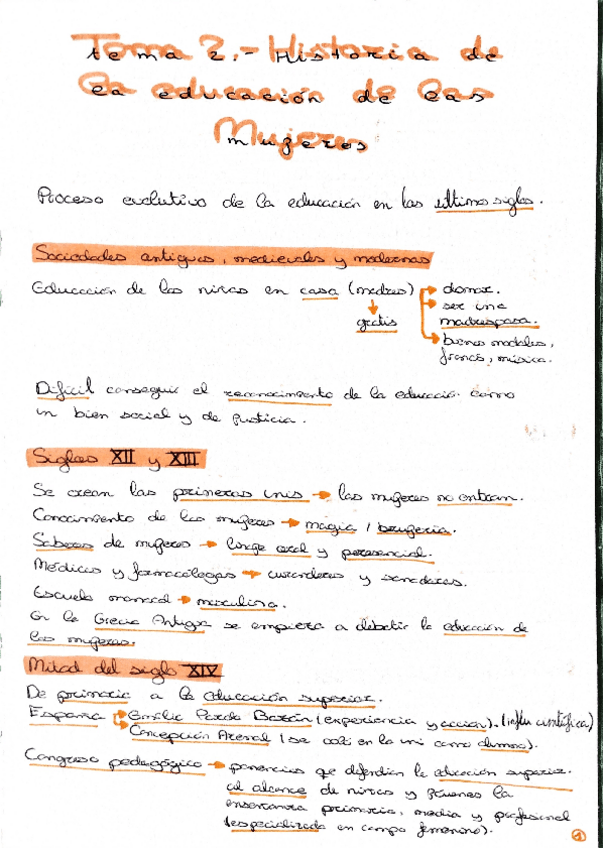 Tema 2.- Historia de
la educación de las
Mujeres
Proceso evolutivo de la educación en los últimos siglos.
Sociedades antiguas, medievales y modernas
Educación de las niñas en casa (madres) → domar.
→ ser una
gratis
madresposa.
→ buenos modales,
francés, música.
Difícil conseguir el reconocimiento de la educación como
un bien social y de justicia.
Siglos XII y XIII
Se crean las primeras unis → las mujeres no entran.
Conocimiento de las mujeres → magia / brujería.
Saberes de mujeres → linaje oral y presencial.
Médicas y farmacólogas → curanderas y sanadoras.
Escuela monacal → masculina.
En la Grecia Antigua se empieza a debatir la educación de
las mujeres.
Mitad del siglo XIV
De primaria a la educación superior.
España → Emilia Pardo Bazán (experiencia y acción). (influ científica)
→ Concepción Arenal (se coló en la uni como alumno).
Congreso pedagógico → ponencias que defendían la educación superior.
al alcance de niñas y jóvenes la
enseñanza primaria, media y profesional
(especializada en campo femenino).
1